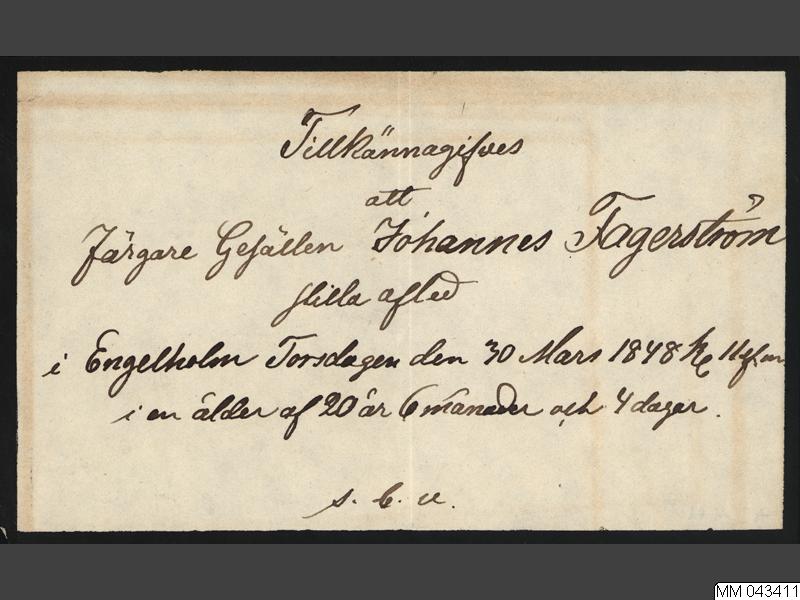 Tillkännagifves
att
Färgare Gesällen Johannes Fagerström
stilla afled
i Engelholm Torsdagen den 30 Mars 1848 kl 11 f.m.
i en ålder af 20 år 6 månader och 4 dagar.
s. b. u.
MM 043411